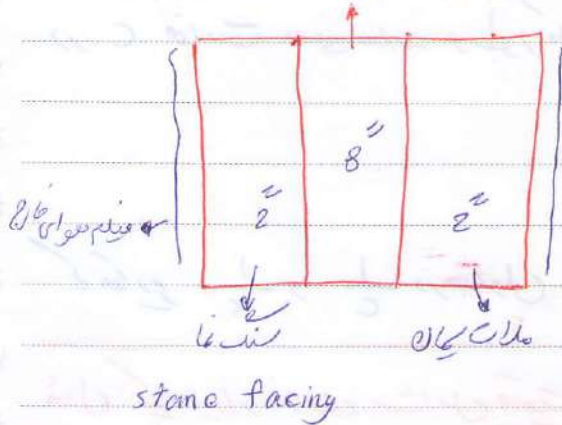 8"
2" 2"
فیلم هوای خارج
سنگ نما ملات سیمان
stone facing